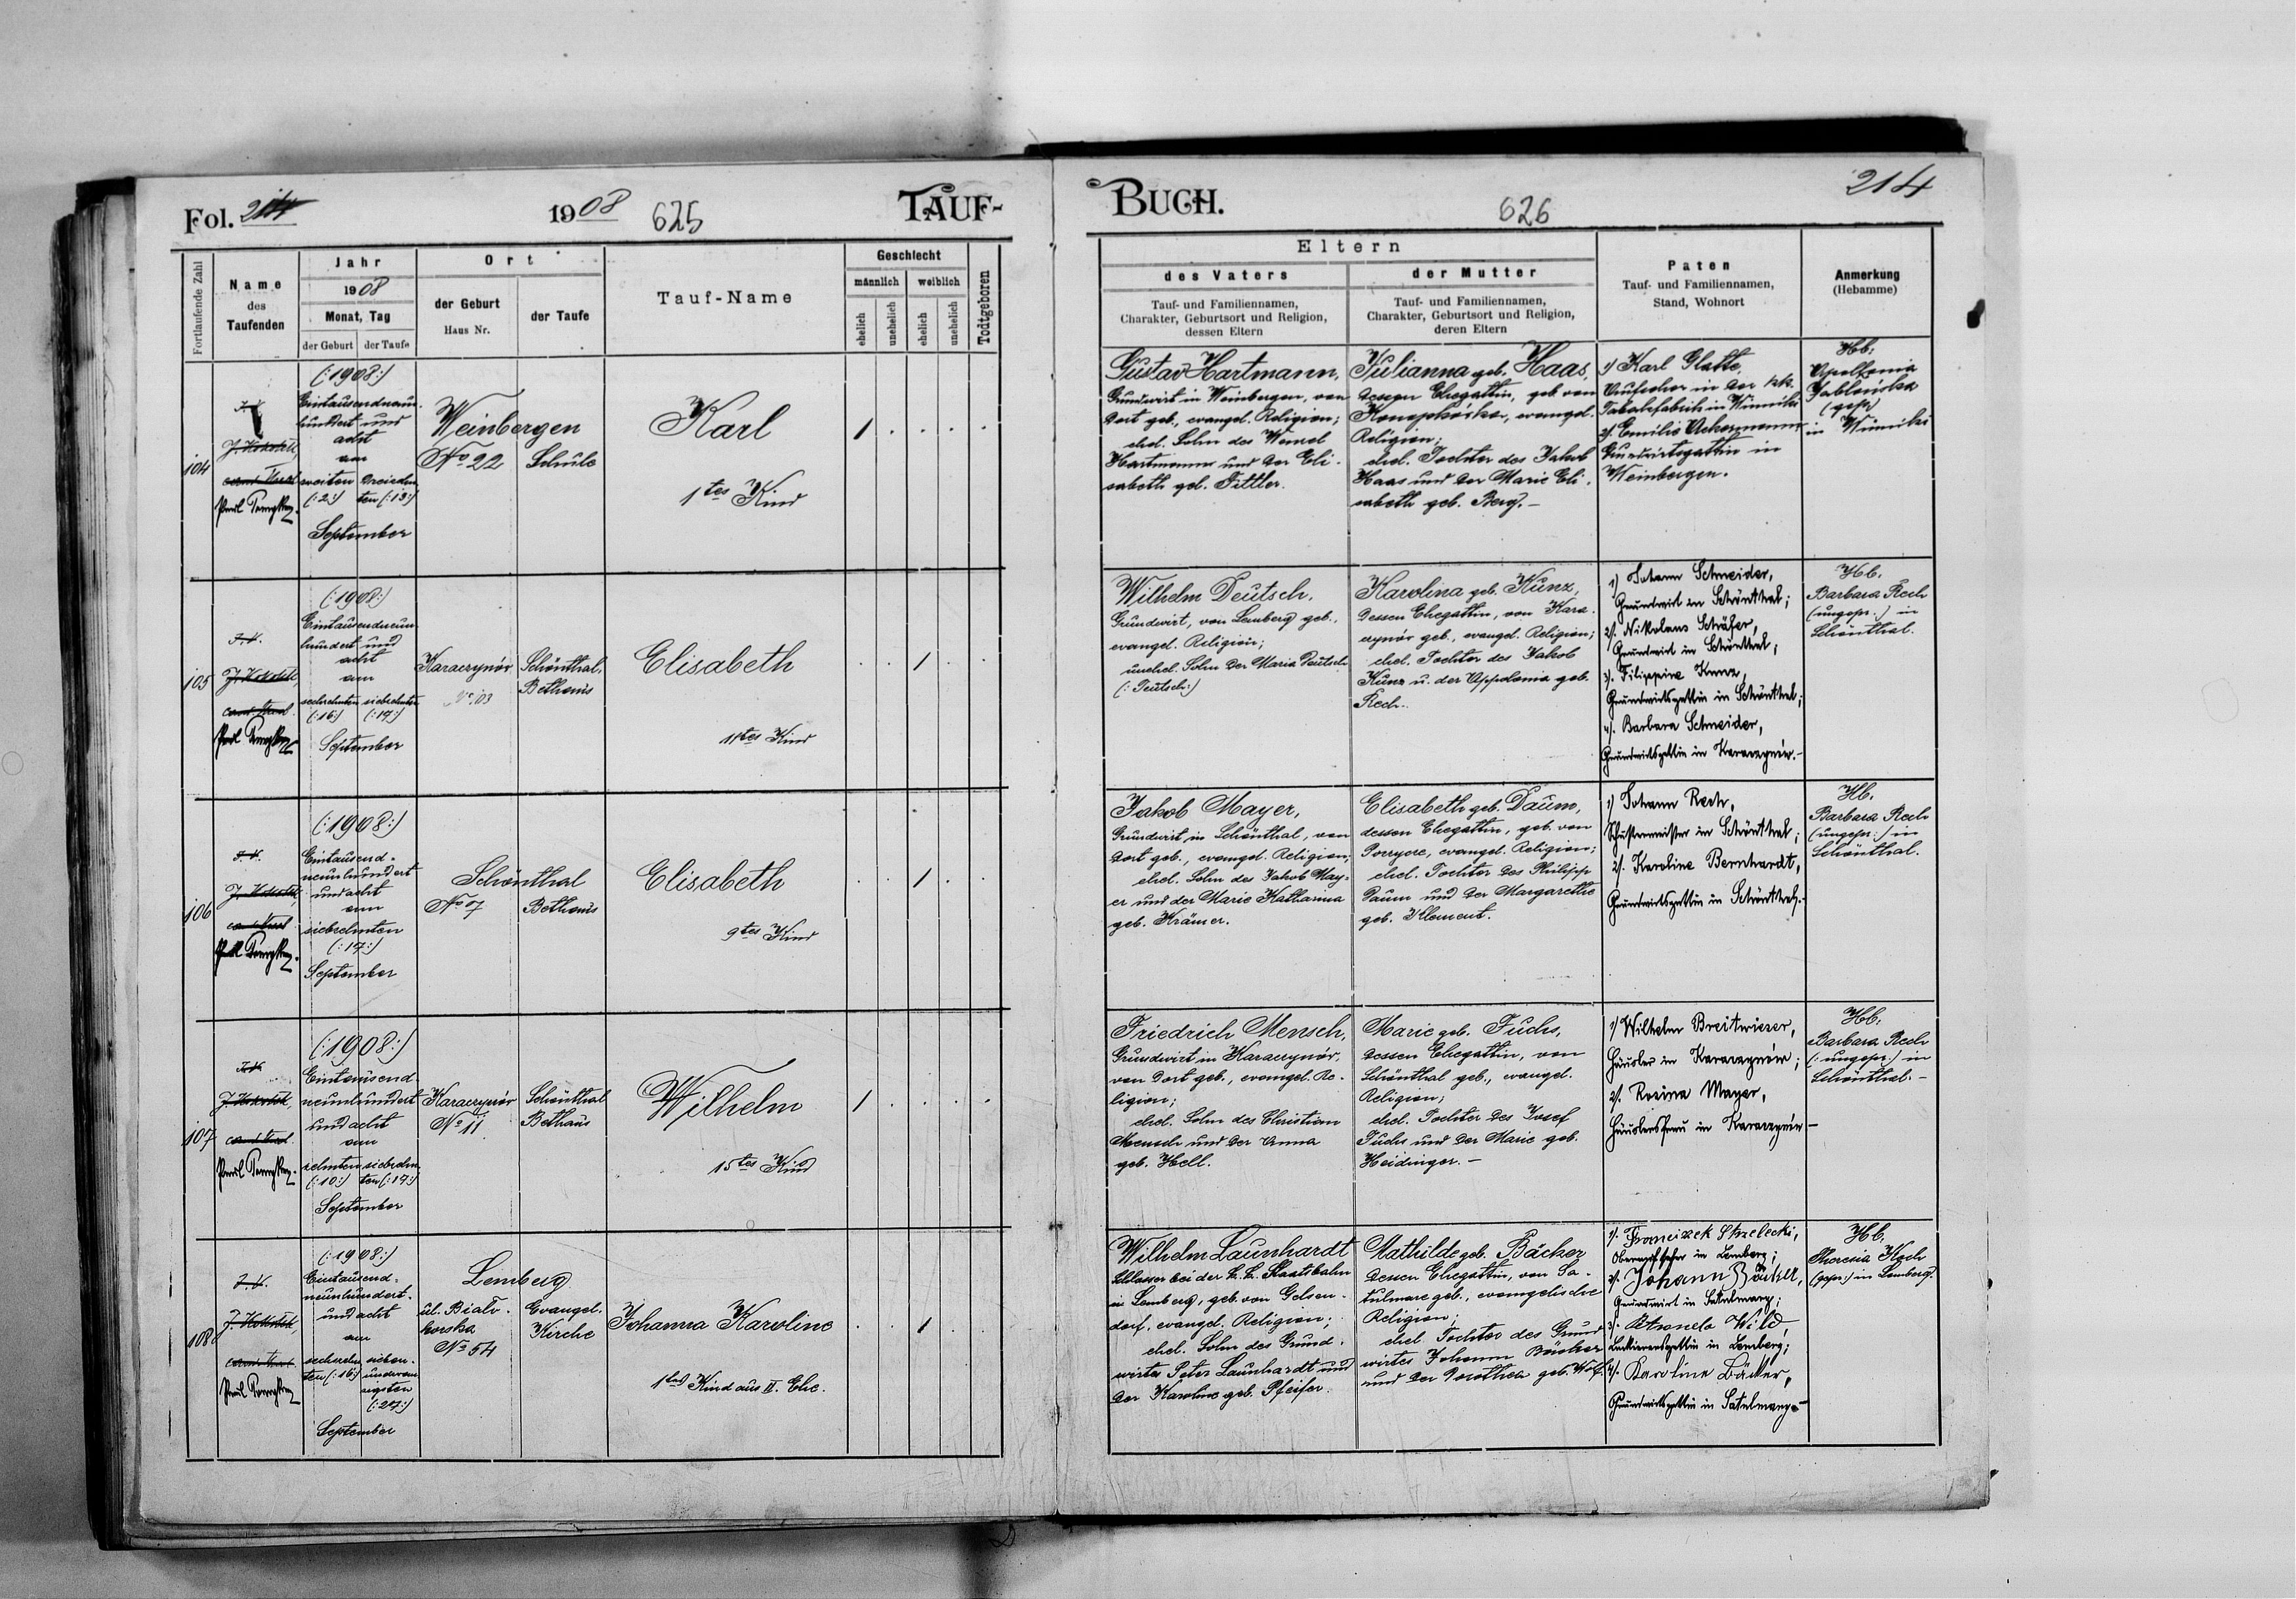 Fol. 214
1908
625
TAUF-
Fortlaufende Zahl
Name
des
Taufenden
Jahr
1908
Monat, Tag
der Geburt
der Taufe
Ort
der Geburt
Haus Nr.
der Taufe
Tauf-Name
Geschlecht
männlich
weiblich
ehelich
unehelich
ehelich
unehelich
Todtgeboren
104
(:1908:)
Eintausendneun-
hundert und
acht
am
zweiten
(:2:)
dreizehn-
ten (:13:)
September
Weinbergen
No 22
Schule
Karl
1tes Kind
1
105
I.V.
(:1908:)
Eintausendneun-
hundert und
acht
am
sechzehnten
(:16:)
siebzehnten
(:17:)
September
Karaczynów
Schönthal,
Bethaus
Elisabeth
11tes Kind
1
106
I.V.
(:1908:)
Eintausend-
neunhundert
und acht
am
siebzehnten
(:17:)
September
Schönthal
No 7
Bethaus
Elisabeth
9tes Kind
1
107
I.V.
(:1908:)
Eintausend-
neunhundert
und acht
am
zehnten
(:10:)
siebzehn-
ten (:17:)
September
Karaczynów
No 11
Schönthal
Bethaus
Wilhelm
15tes Kind
1
108
I.V.
(:1908:)
Eintausend-
neunhundert-
und acht
am
sechzehn-
ten (:16:)
sieben-
undzwan-
zigsten
(:27:)
September
Lemberg
ul. Biało-
horska
No 54
Evangel.
Kirche
Johanna Karoline
1tes Kind aus II. Ehe.
1
BUCH.
626
214
Eltern
des Vaters
Tauf- und Familiennamen,
Charakter, Geburtsort und Religion,
dessen Eltern
der Mutter
Tauf- und Familiennamen,
Charakter, Geburtsort und Religion,
deren Eltern
Paten
Tauf- und Familiennamen,
Stand, Wohnort
Anmerkung
(Hebamme)
Gustav Hartmann,
Grundwirt in Weinbergen, von
dort geb., evangel. Religion;
ehel. Sohn des Wenzel
Hartmann und der Eli-
sabeth geb. Tittler.
Julianna geb. Haas,
dessen Ehegattin, geb. von
Konopkówka, evangel.
Religion;
ehel. Tochter des Jakob
Haas und der Marie Eli-
sabeth geb. Berg.-
1) Karl Glatte,
Aufseher in der k.k.
Tabakfabrik in Winniki
2). Emilie Ackermann
Grundwirtsgattin in
Weinbergen.
Hb:
Apollonia
Jablońska
(gepr)
in Winniki
Wilhelm Deutsch,
Grundwirt, von Lemberg geb.,
evangel. Religion;
unehel. Sohn der Maria Deutsch
(:Teutsch:)
Karolina geb. Kunz,
dessen Ehegattin, von Kara-
czynów geb., evangel. Religion;
ehel. Tochter des Jakob
Kunz u. der Appolonia geb.
Rech.
1) Johann Schneider,
Grundwirt in Schönthal;
2). Nikolaus Schäfer,
Grundwirt in Schönthal;
3). Filippine Kunz,
Grundwirtsgattin in Schönthal;
4). Barbara Schneider,
Grundwirtsgattin in Karaczynów.-
Hb.
Barbara Rech
(ungepr.:) in
Schönthal.
Jakob Mayer,
Grundwirt in Schönthal, von
dort geb., evangel. Religion;
ehel. Sohn des Jakob May-
er und der Marie Katharina
geb. Krämer.
Elisabeth geb. Daum,
dessen Ehegattin, geb. von
evangel. Religion;
ehel. Tochter des Philipp
Daum und der Margarethe
geb. Klement.
1) Johann Rech,
Schustermeister in Schönthal;
2). Karoline Bernhardt,
Grundwirtsgattin in Schönthal.-
Hb.
Barbara Rech
(ungepr.:) in
Schönthal.
Friedrich Mensch,
Grundwirt in Karaczynów,
von dort geb., evangel. Re-
ligion;
ehel. Sohn des Christian
Mensch und der Anna
geb. Hell.
Marie geb. Fuchs,
dessen Ehegattin, von
Schönthal geb., evangel.
Religion;
ehel. Tochter des Josef
Fuchs und der Marie geb.
Heidinger.-
1) Wilhelm Breitwieser,
Häusler in Karaczynów;
2). Rosina Mayer,
Häuslersfrau in Karaczynów-
Hb.
Barbara Rech
(:ungepr.:) in
Schönthal.-
Wilhelm Launhardt
Schlosser bei der k.k. Staatsbahn
in Lemberg, geb. von Gelsen-
dorf, evangel. Religion;
ehel. Sohn des Grund-
wirtes Peter Launhardt und
der Karoline geb. Pfeifer.
Mathilde geb. Bäcker
dessen Ehegattin, von Sa-
tulmare geb., evangelische
Religion;
ehel. Tochter des Grund-
wirtes Johann Bäcker
und der Dorothea geb. Wolf.
1). Franciszek Strzelecki,
in Lemberg;
2). Johann Bäcker,
Grundwirt in Satulmare;
3. Petronela Wild,
Lackierersgattin in Lemberg;
4). Karoline Bäcker,
Grundwirtsgattin in Satulmare-
Hb.
Theresia Koch
(gepr.:) in Lemberg.